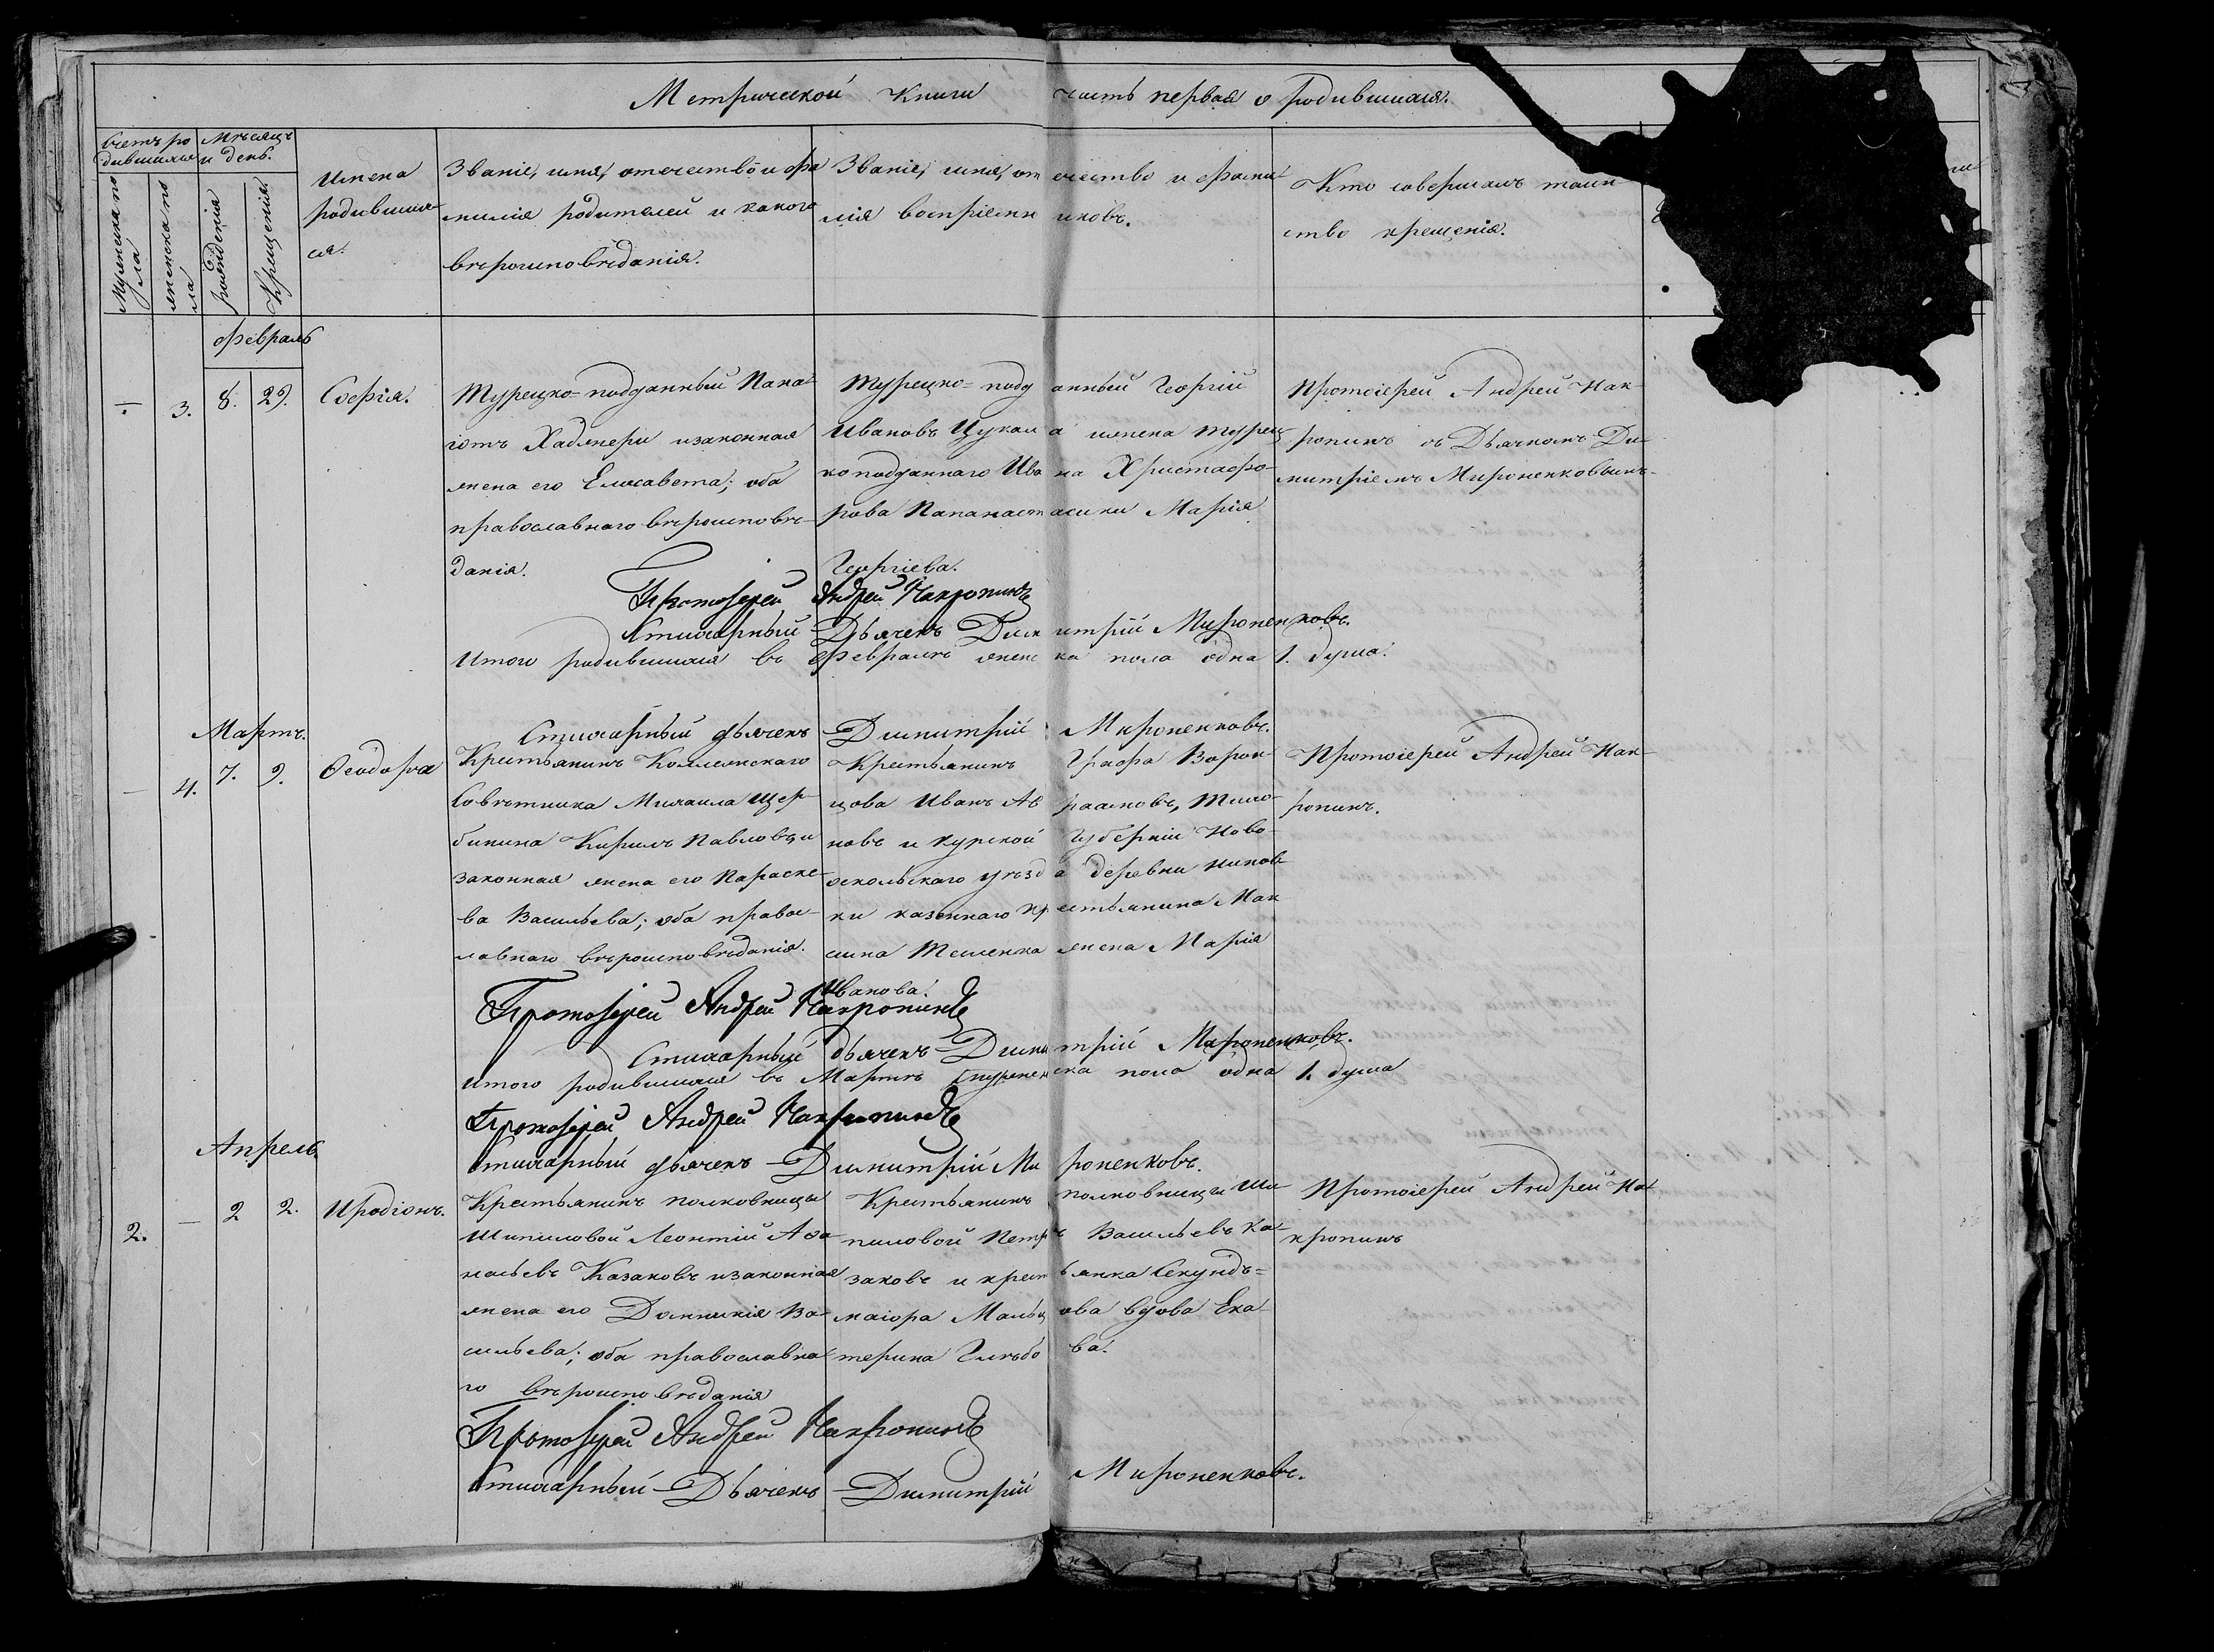 Метрической Книги часть первая о родившихся.
Счетъ родившихся
Мѣсяцъ и день.
Мужеска пола
женска пола
рожденія
Крещенія
Имена
родивших
ся.
Званіе, имя, отчество и фа
милія родителей и какого
вѣроисповѣданія.
Званіе, имя, отчество и фами
лія воспріемниковъ.
Кто совершалъ таин
ство крещенія.
Февраль
3.
8.
29.
Софія.
Турецко-подданный Пана
іотъ Хаджери и законная
жена его Елисавета; оба
православнаго вѣроисповѣ-
данія.
Турецко-подданный Георгій
Ивановъ Цукала и жена турец
коподданнаго Ивана Христофо-
рова Папанастасики Марія
Георгіева.
Протоіерей Андрей Нак-
ропинъ съ Дьячкомъ Ди-
митріемъ Мироненковымъ
Протоіерей Андрей Накропинъ
Стихарный Дьячекъ Димитрій Мироненковъ.
Итого родившихся въ Февралѣ женска пола одна 1. душа.
Мартъ.
Стихарный дьячекъ Димитрій Мироненковъ.
4.
7.
9.
Ѳеодора
Крестьянинъ Коллежскаго
Совѣтника Михаила Щер-
бинина Кирилъ Павловъ, и
законная жена его Параске-
ва Васильева; оба правос-
лавнаго вѣроисповѣданія.
Крестьянинъ Графа Ворон-
цова Иванъ Авраамовъ, Тимо-
новъ и Курской Губерніи Ново-
оскольскаго уѣзда деревни
ки казеннаго крестьянина Мак
сима жена Марія
Иванова.
Протоіерей Андрей Нак-
ропинъ.
Протоіерей Андрей Накропинъ
Стихарный дьячекъ Димитрій Мироненковъ.
Итого родившихся въ Мартѣ пола одна 1. душа
Протоіерей Андрей Накропинъ
Апрель.
Стихарный дьячекъ Димитрій Мироненковъ.
2.
2
2.
Иродіонъ.
Крестьянинъ полковницы
Шипиловой Леонтій Аѳа-
насьевъ Казаковъ и законная
жена его Домникія Ва-
сильева; оба православна
го вѣроисповѣданія
Крестьянинъ полковницы Ши
пиловой Петръ Васильевъ Ка-
заковъ и крестьянка Секундъ-
маіора Мальцова вдова Ека-
терина Глѣбова.
Протоіерей Андрей На
кропинъ
Протоіерей Андрей Накропинъ
Стихарный Дьячекъ Димитрій Мироненковъ.